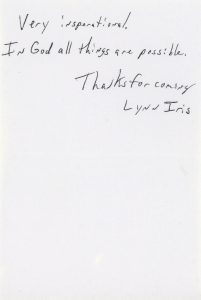 Very insparational.
In God all things are possible.
Thanks for coming
Lynn Iris